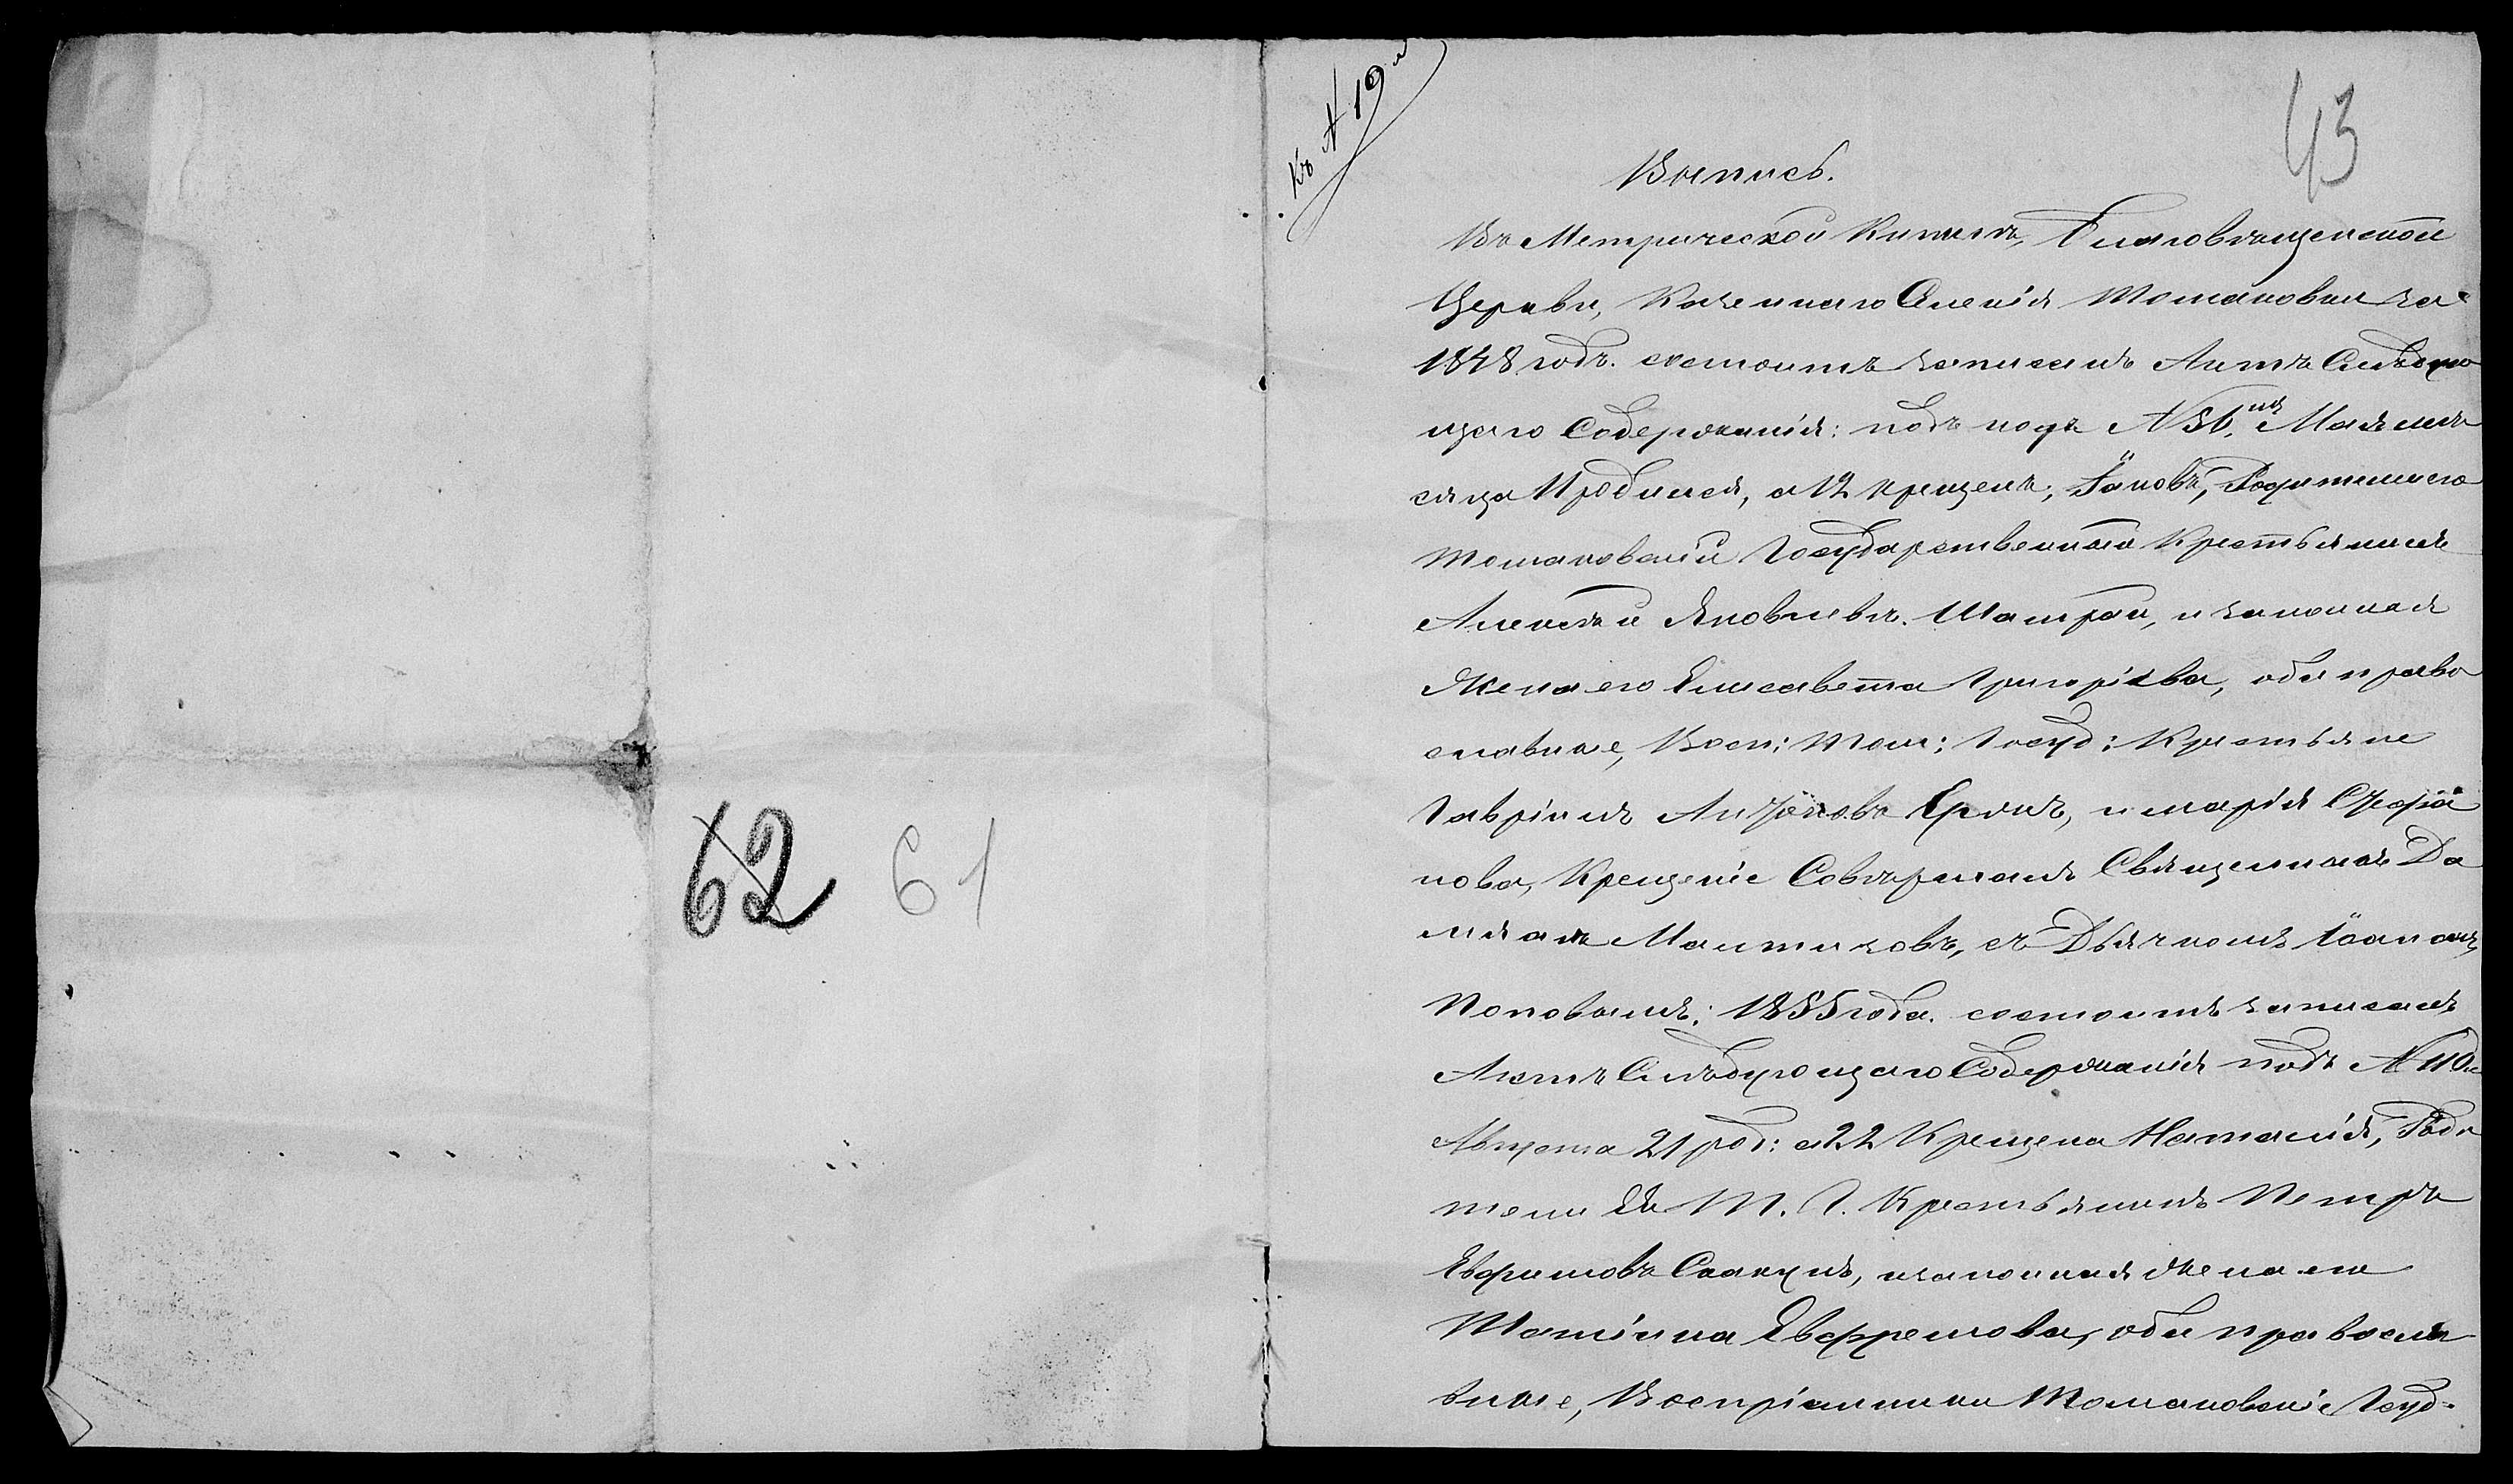 62 61
Къ № 19й
43
Выпись.
Въ Метрической Книгѣ, Благовѣщенской
Церкви, Казеннаго Селенія Томаковки за
1848 годъ. состоитъ записанъ Актъ Слѣдую
щаго Содержанія: подъ № 51. Мая мѣ
сяца 11 родился, а 12 крещенъ, Іаковъ, Родители его
Томаковскій Государственный Крестьянинъ
Алексѣй Яковлевъ. Шатрай, и законная
Жена его Елисавета Григоріева, оба право
славные, Восп: Том: Госуд: Крестьяне
Гавріилъ Антоновъ и марія Стефа
нова, Крещеніе Совѣршалъ Священникъ Да
міанъ съ Дьячкомъ Іоанномъ
Поповымъ; 1855 года. состоитъ записанъ
Актъ Слѣдующаго Содержанія подъ № 110м
Августа 21 род: а 22 Крещена Наталія, Роди
тели Ея Т. Г. Крестьянинъ Петръ
Евфимовъ и законная жена его
Татіана Евфремова, оба правосла
вные, Воспріемники Томаковскіе Госуд.